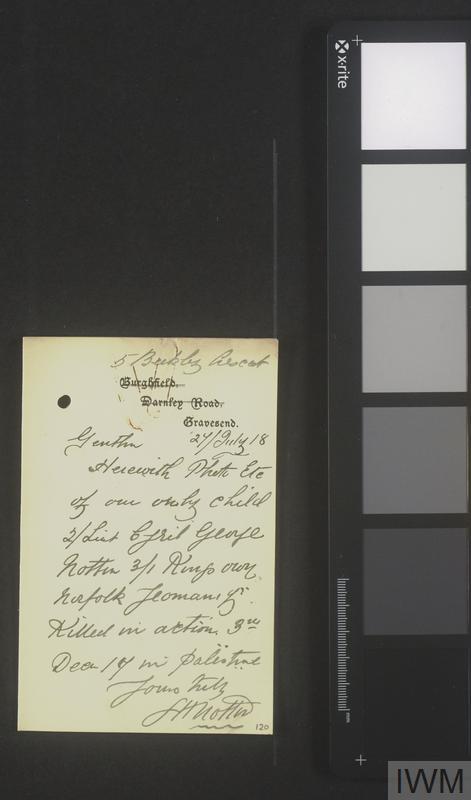 5 Berkley Crescent
Burghfield.
Darnley Road.
Gravesend.
27/July 18
Gentlm
Herewith Photo Etc
of our only child
2/Lieut Cyril George
3/1 Kings own
Norfolk Yeomanry.
Killed in action 3rd
Decr 17 in Palestine
Yours truly
120
x·rite
mm
IWM